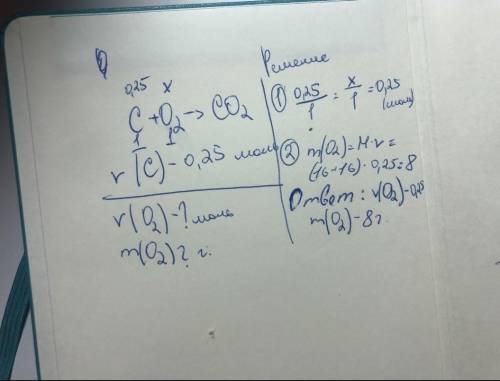 0,25 x
C + O₂ → CO₂
1 1
ν (C) - 0,25 моль
ν (O₂) - ? моль
m(O₂) ? г.
Решение
① 0,25/1 = x/1 = 0,25
(моль)
② m(O₂) = M · ν =
(16-16) · 0,25 = 8
Ответ: ν(O₂) - 0,25
m(O₂) - 8 г.